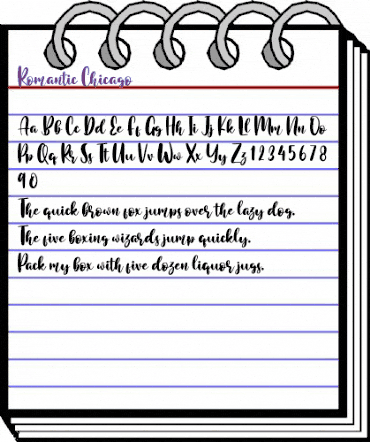 Romantic Chicago
Aa Bb Cc Dd Ee Ff Gg Hh Ii Jj Kk Ll Mm Nn Oo
Pp Qq Rr Ss Tt Uu Vv Ww Xx Yy Zz 1 2 3 4 5 6 7 8
9 0
The quick brown fox jumps over the lazy dog.
The five boxing wizards jump quickly.
Pack my box with five dozen liquor jugs.